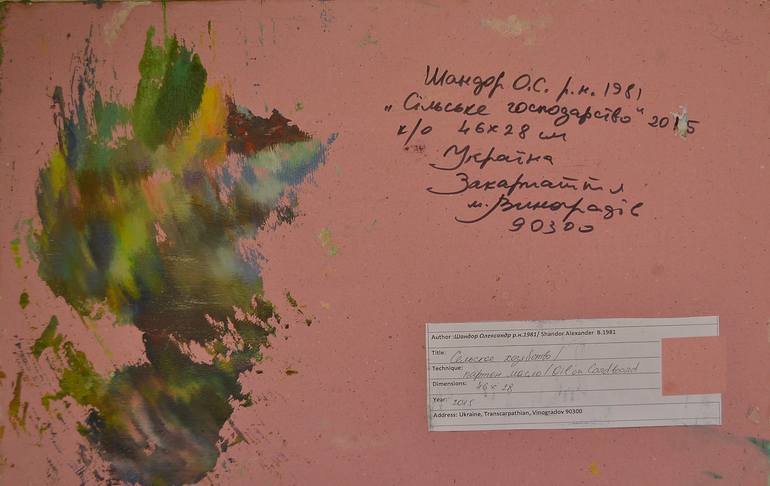 Шандор О.С. р.н. 1981
„Сільське господарство" 2015
к/о 46×28 см
Україна
Закарпаття
м. Виноградів
90300
Author :Шандор Олександр р.н.1981/ Shandor Alexander B.1981
Title: Сельское хозяйство/
Technique: картон масло/Oil on Cardboard
Dimensions: 46×28
Year: 2015
Address: Ukraine, Transcarpathian, Vinogradov 90300